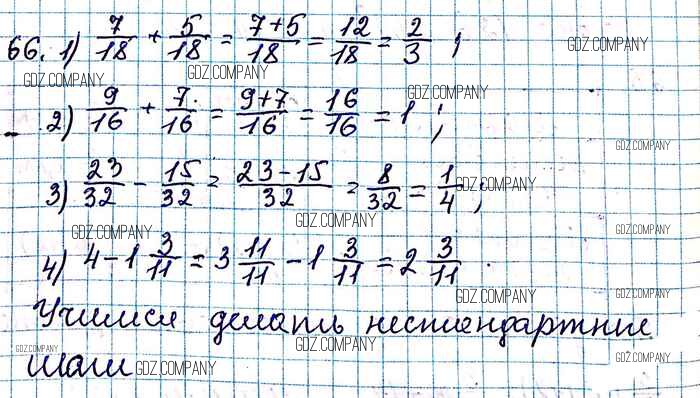 66. 1) 7/18 + 5/18 = 7+5/18 = 12/18 = 2/3 ;
GDZ.COMPANY GDZ.COMPANY GDZ.COMPANY
2) 9/16 + 7/16 = 9+7/16 = 16/16 = 1 ;
GDZ.COMPANY GDZ.COMPANY
3) 23/32 - 15/32 = 23-15/32 = 8/32 = 1/4 ;
GDZ.COMPANY GDZ.COMPANY GDZ.COMPANY
4) 4 - 1 3/11 = 3 11/11 - 1 3/11 = 2 3/11 .
GDZ.COMPANY GDZ.COMPANY GDZ.COMPANY GDZ.COMPANY
Учимся делать нестандартные
GDZ.COMPANY GDZ.COMPANY GDZ.COMPANY
шаги GDZ.COMPANY